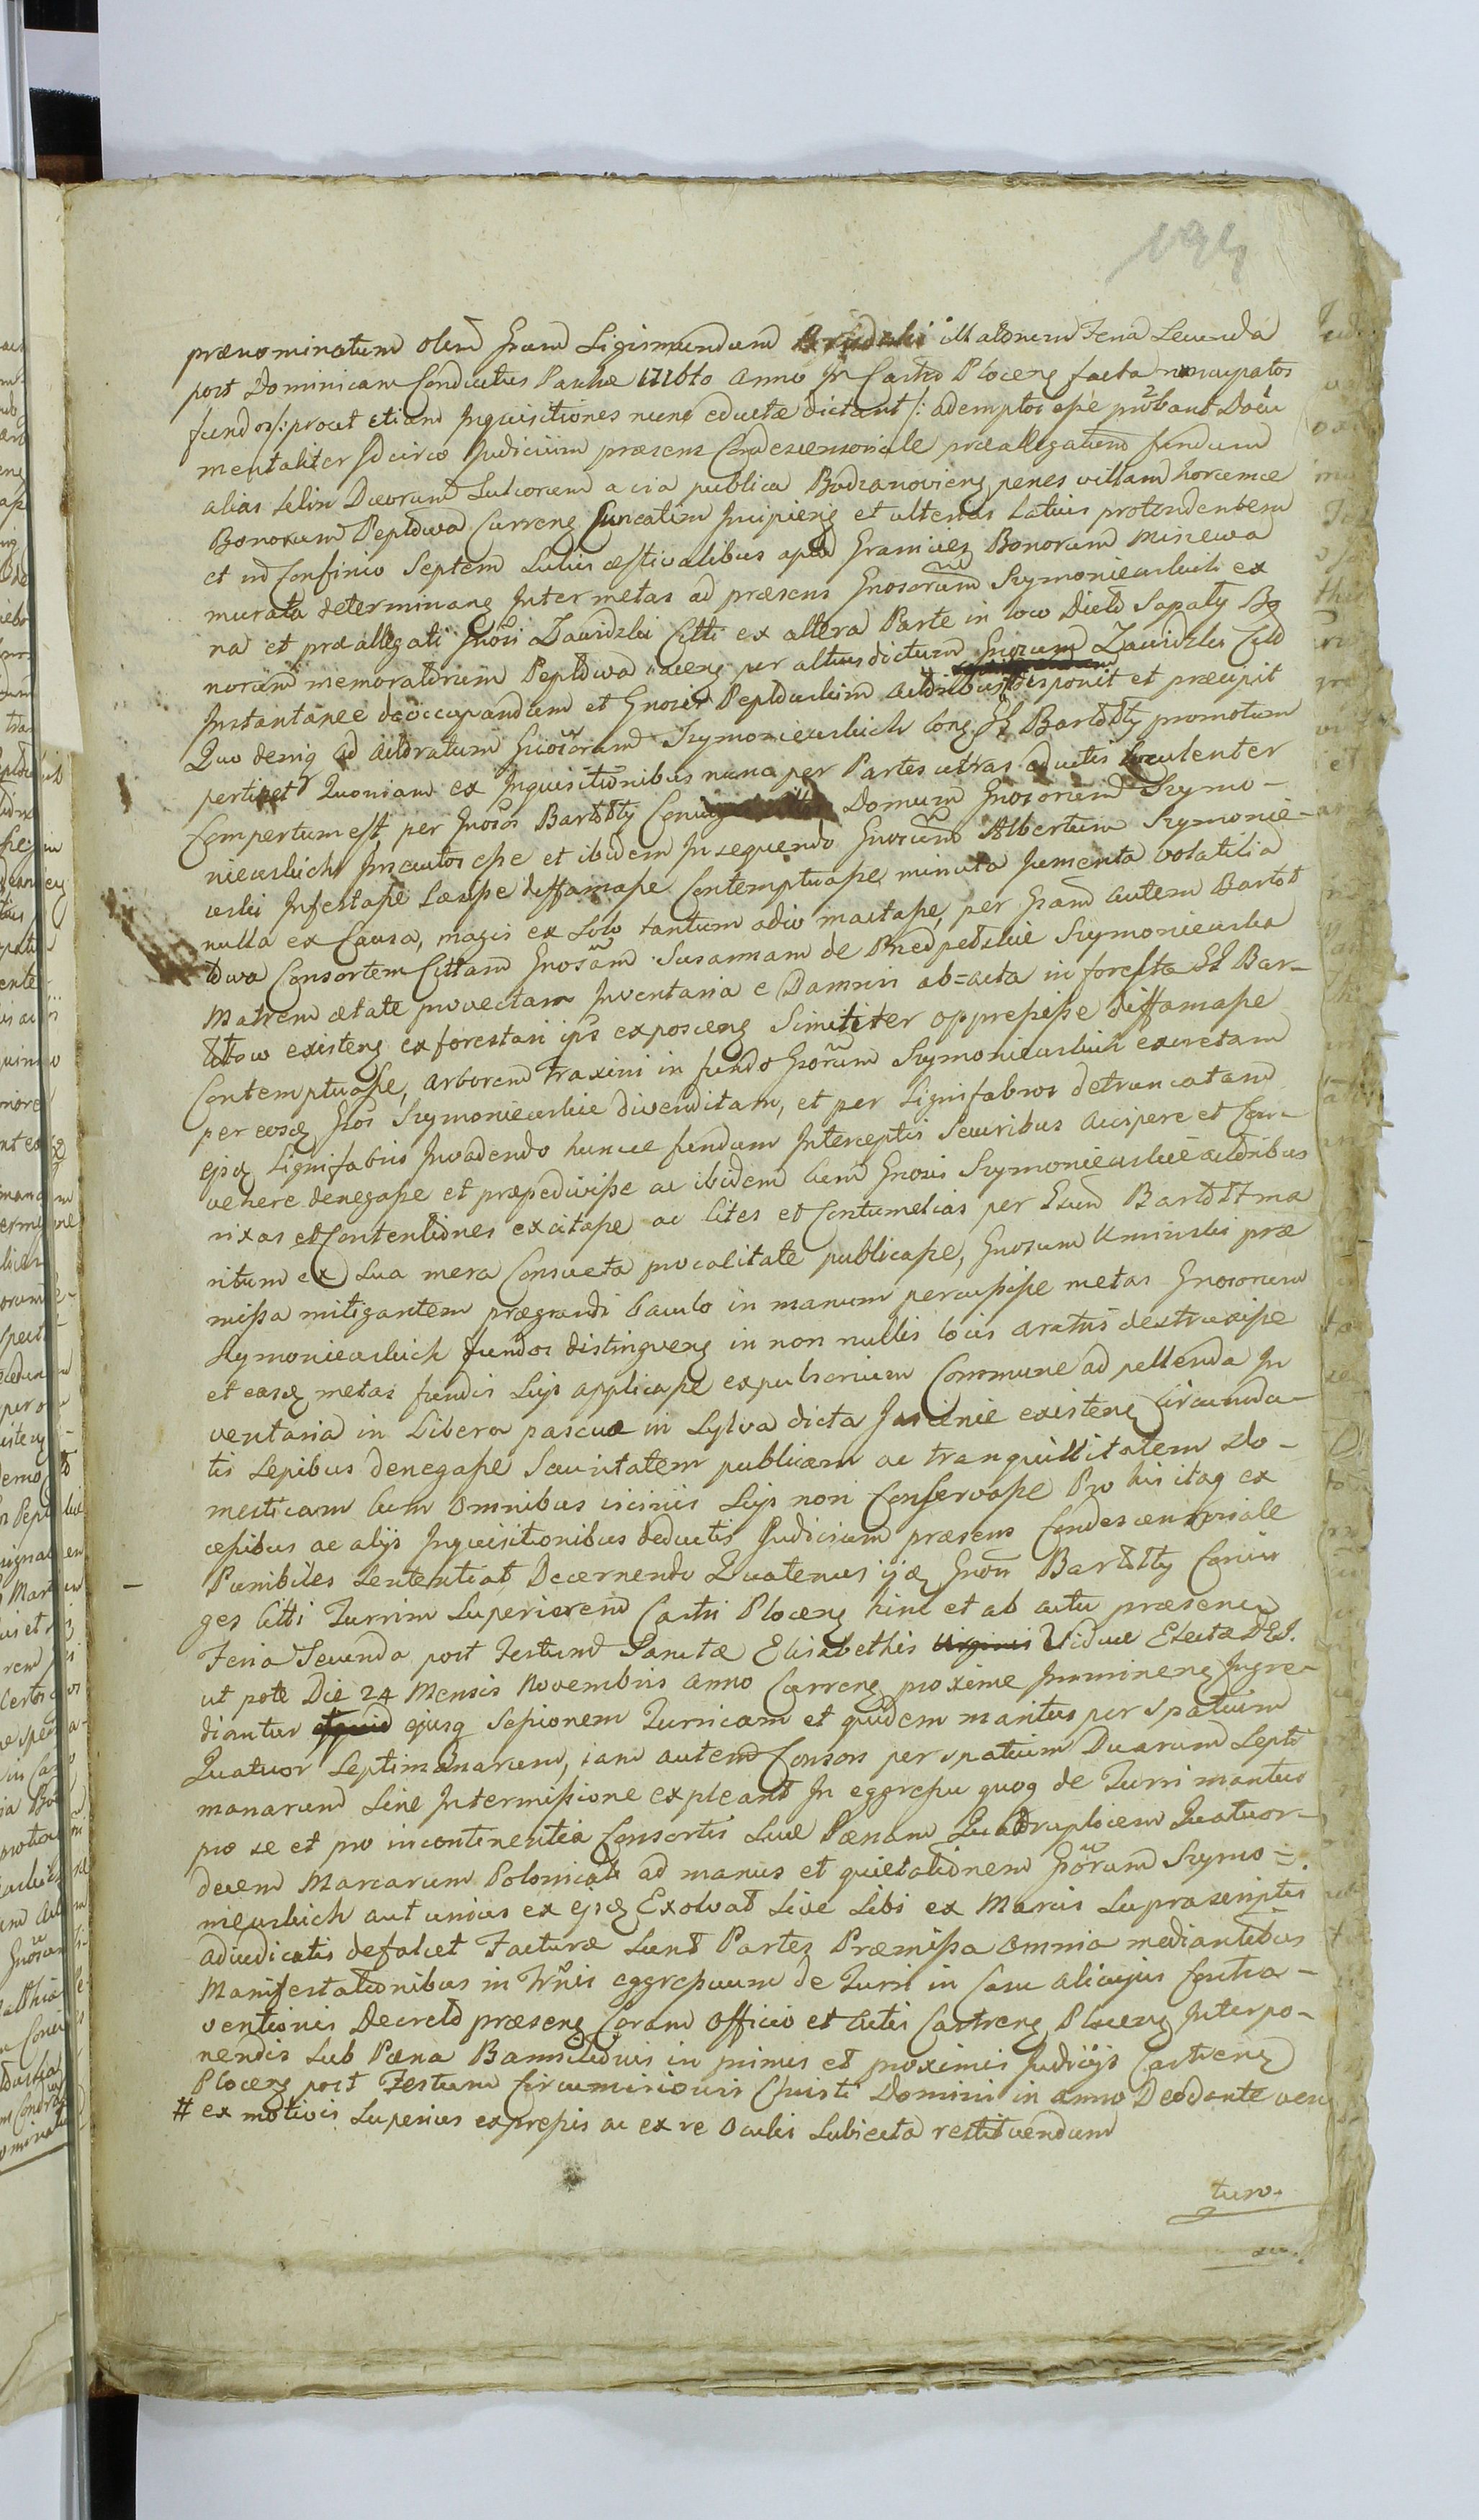 prænominatum olim Grum Sigismundum illatorum Feria Secunda
post Dominicam Conductus Paschæ 1716to Anno In Castro Plocens facta nuncupatos
fundos /: prout etiam Inquisitiones nunc eductæ dictant :/ ademptos esse probant Docu
mentaliter Idcirco Judicium præsens Condescensoriale præallegatum fundum
alias Klin Duorum Sulcorum a via publica Bodzanoviens penes villam horumce
Bonorum Pepłowo Currens Cuneatim Incipiens et ulterius Latius protendentem
et in Confinio Septem Sulcis æstivalibus apud Granicies Bonorum Miszewa
murata determinans Inter metas ad præsens Gnosorum Szymoniewskich ex
na et præallegati Gnosi Zawidzki Citti ex altera Parte in loco dicto Sapaty Bo
norum memoratorum Pepłowo iacens per altius dictum Gnosum Zawidzki Citt
Instantanee deoccupandum et Gnosis Pepłowskim Actoribus disponit et præcipit
Quo deniq ad Actoratum Gnosorum Szymoniewskich Cong Gl Bartołty promotum
pertinet Quoniam ex Inquisitionibus nunc per Partes utras eductis luculenter
Compertum est, per Gnosos Bartołty Domum Gnosorum Szymo-
niewskich Invasos esse et ibidem Insequendo Gnosum Albertum Szymonie-
wski Infestasse Læsisse diffamasse Contemptuasse minuta Jumenta volatilia
nulla ex Causa, magis ex Solo tantum odio mactasse, per Gsam autem Bartoł
towa Consortem Cittam Gnosam Susannam de Szymoniewska
Matrem ætate provectam Inventaria e Damnis ab=acta in foresta Gl Bar-
łtow existens exforestari ips exposcens Similiter oppressisse diffamasse
Contemptuasse, arborem Fraxini in fundo Gsorum Szymoniewskich excretam
per eosq Gsos Szymoniewskie divenditam, et per Lignifabros detruncatam
ejsq Lignifabris Invadendo huncce fundum Interceptis Securibus Accipere et Con-
vehere denegasse et præpedivisse ac ibidem Cum Gnosis Szymoniewskie actoribus
rixas et Contentiones excitasse ac lites et Contumelias per Gsum Bartołt ma
ritum ex Sua mera Consueta procacitate publicasse, Gnosum Umiński præ
missa mitigantem prægrandi baculo in manum percussisse metas Gnosorum
Szymoniewskich fundos distingvens in non nullis locis aratris destruxisse
et easq metas fundis Suis applicasse expulsorium Commune ad pellenda In
ventaria in Libera pascua in Sylva dicta Jasienie existens Circumda-
tis Sepibus denegasse Securitatem publicam ac tranquillitatem Do-
mesticam Cum Omnibus vicinis Suis non Conservasse Pro his itaq ex
cessibus ac alijs Inquisitionibus deductis Judicium præsens Condescensoriale
Punibiles Sententiat Decernendo Quatenus ijdq Gnosi Bartołty Coniu
ges Citti Turrim Superiorem Castri Plocens hinc et ab actu præsenti
Feria Secunda post Festum Sanctæ Elisabethis Viduæ Electæ DEI.
ut pote Die 24 Mensis Novembris Anno Currens proxime Imminens Ingre-
diantur ejusq Sessionem Turricam et quidem maritus per Spatium
Quatuor Septimanarum, iam autem Consors per spatium Duarum Septi
manarum Sine Intermissione expleant In eggressu quoq de Turri maritus
pro se et pro incontinentia Consortis Suæ Pænam Quadruplicem Quatuor-
decem Marcarum Polonical ad manus et quietationem Gsorum Szymo=
niewskich aut unius ex ejsq Exolvat Sive Sibi ex Marcis Suprascriptis
adiudicatis defalcet Facturæ Sunt Partes Præmissa Omnia mediantibus
Manifestationibus in Trnis eggressuum de Turri in Casu alicujus Contra-
ventionis Decreto præsens Coram Officio et Actis Castrens Plocens Interpo-
nendis Sub Pæna Bannitionis in primis et proximis Judicijs Castrens
Plocens post Festum Circumcisionis Christi Domini in anno Deo dante ven
# ex motivis Superius expressis ac ex re Oculis Subiecta restituendum
turo.